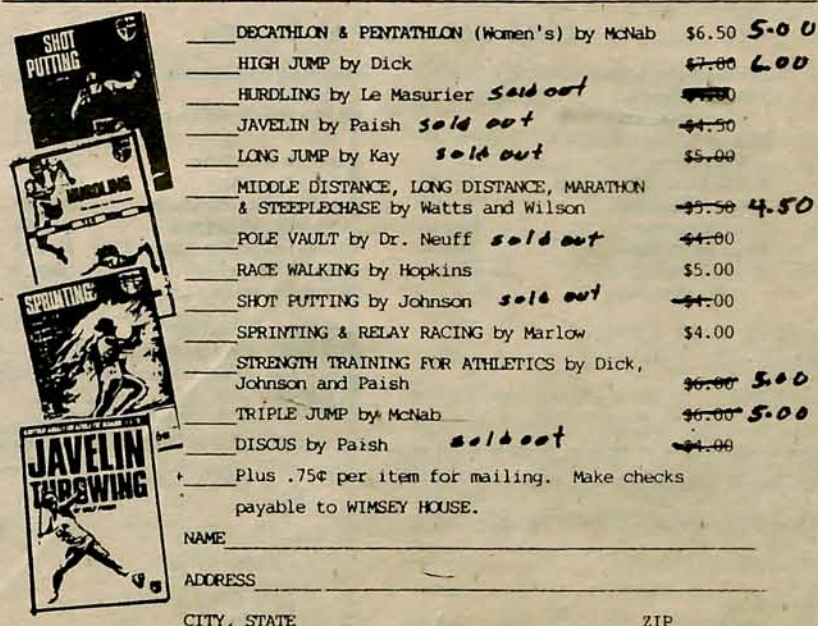 SHOT
PUTTING
HURDLING
SPRINTING
JAVELIN
THROWING
____DECATHLON & PENTATHLON (Women's) by McNab $6.50 5.00
____HIGH JUMP by Dick $7.00 6.00
____HURDLING by Le Masurier sold out
____JAVELIN by Paish sold out $4.50
____LONG JUMP by Kay sold out $5.00
____MIDDLE DISTANCE, LONG DISTANCE, MARATHON
& STEEPLECHASE by Watts and Wilson $5.50 4.50
____POLE VAULT by Dr. Neuff sold out $4.00
____RACE WALKING by Hopkins $5.00
____SHOT PUTTING by Johnson sold out $4.00
____SPRINTING & RELAY RACING by Marlow $4.00
____STRENGTH TRAINING FOR ATHLETICS by Dick,
Johnson and Paish $6.00 5.00
____TRIPLE JUMP by McNab $6.00 5.00
____DISCUS by Paish sold out $4.00
____Plus .75¢ per item for mailing. Make checks
payable to WIMSEY HOUSE.
NAME
ADDRESS
CITY, STATE ZIP